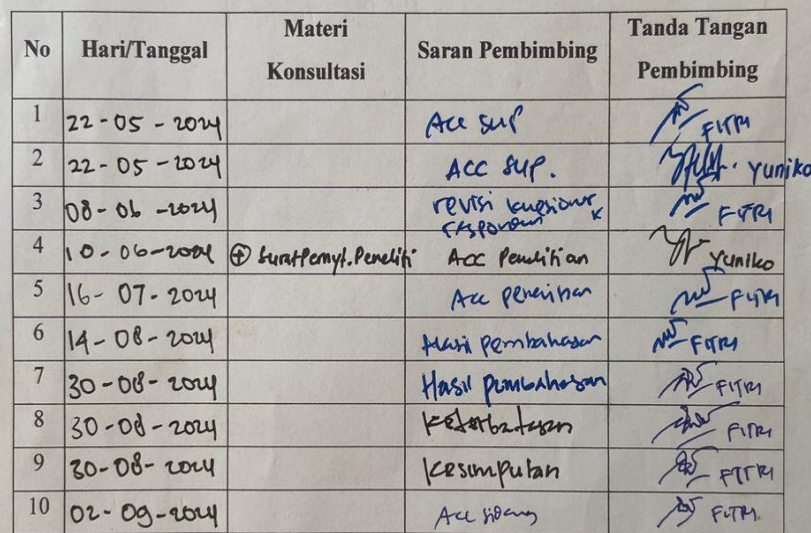 No Hari/Tanggal Materi Konsultasi Saran Pembimbing Tanda Tangan Pembimbing
1 22-05-2024 Acc sup FITRI
2 22-05-2024 ACC sup. Yuniko
3 08-06-2024 revisi kuesioner FITRI
responden
4 10-06-2024 + Surat Pernyt. Peneliti Acc Penelitian Yuniko
5 16-07-2024 Acc penelitian FITRI
6 14-08-2024 Hasil pembahasan FITRI
7 30-08-2024 Hasil pembahasan FITRI
8 30-08-2024 Keterbatasan FITRI
9 30-08-2024 Kesimpulan FITRI
10 02-09-2024 Acc sidang FITRI